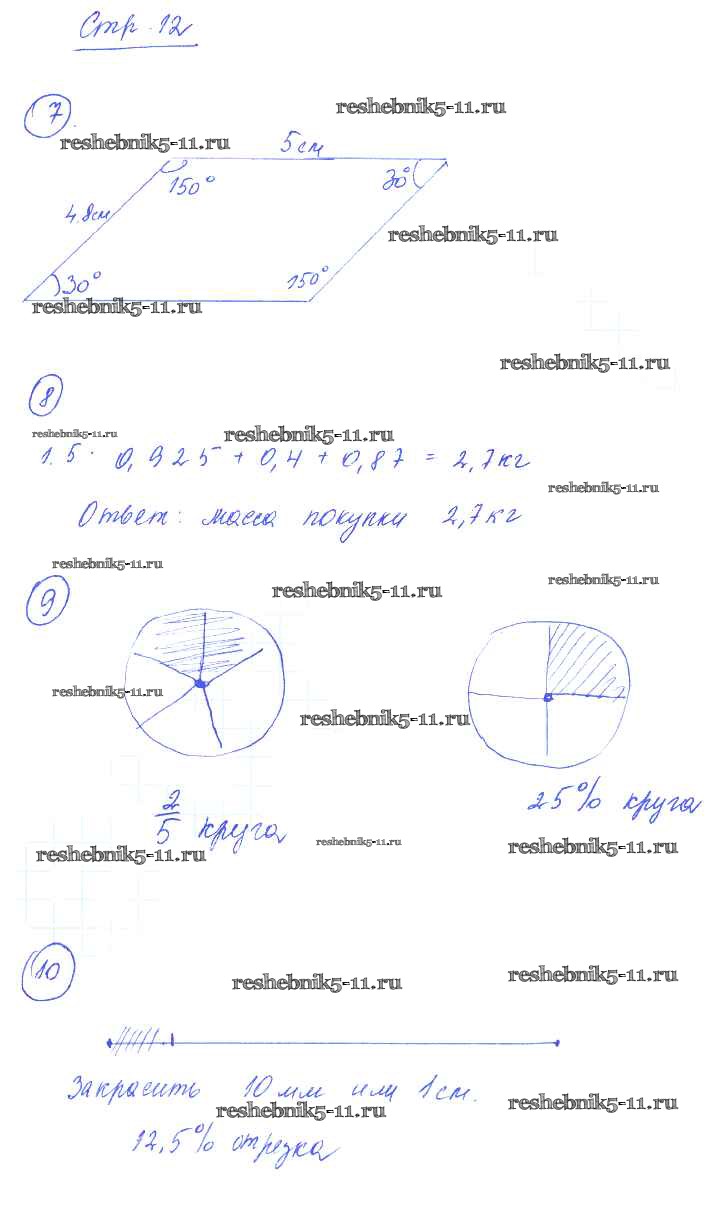 Стр. 12
reshebnik5-11.ru
7
reshebnik5-11.ru
5 см
150°
30°
4.8см
reshebnik5-11.ru
30°
150°
reshebnik5-11.ru
reshebnik5-11.ru
8
reshebnik5-11.ru
reshebnik5-11.ru
1.5 · 0,925 + 0,4 + 0,87 = 2,7кг
reshebnik5-11.ru
Ответ: масса покупки 2,7кг
reshebnik5-11.ru
reshebnik5-11.ru
9
reshebnik5-11.ru
reshebnik5-11.ru
reshebnik5-11.ru
2/5 круга
25% круга
reshebnik5-11.ru
reshebnik5-11.ru
reshebnik5-11.ru
10
reshebnik5-11.ru
reshebnik5-11.ru
Закрасить 10мм или 1см.
reshebnik5-11.ru
reshebnik5-11.ru
12,5% отрезка